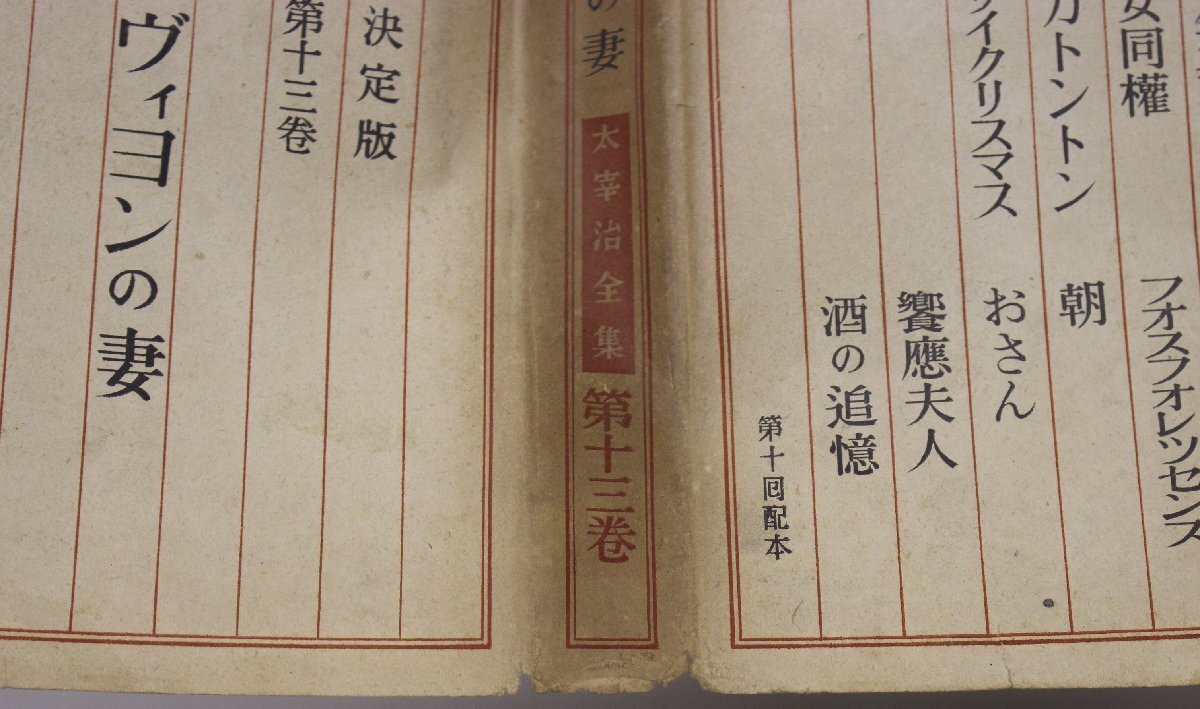 女同權
フオスフオレツセンス
カトントン
朝
イクリスマス
おさん
饗應夫人
酒の追憶
第十囘配本
の妻
太宰治全集
第十三卷
決定版
第十三卷
ヴィヨンの妻